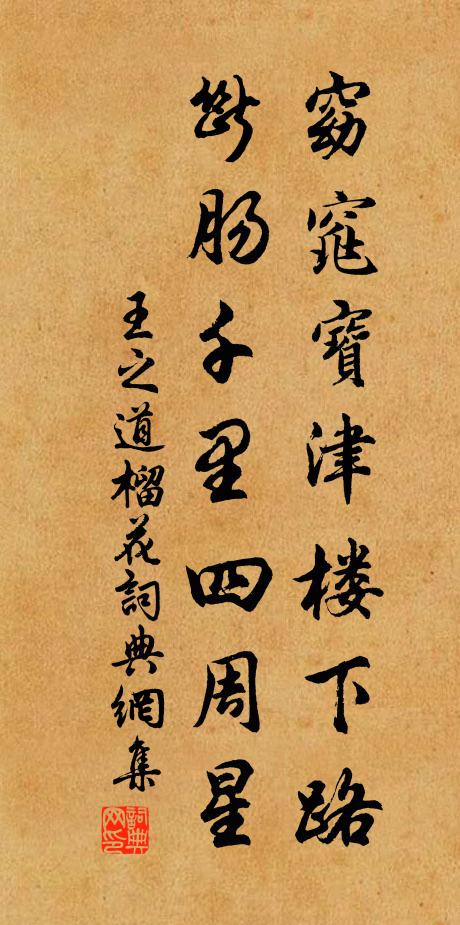 窈窕寶津楼下路
斷肠千里四周星
王之道榴花詞典網集
詞典網印